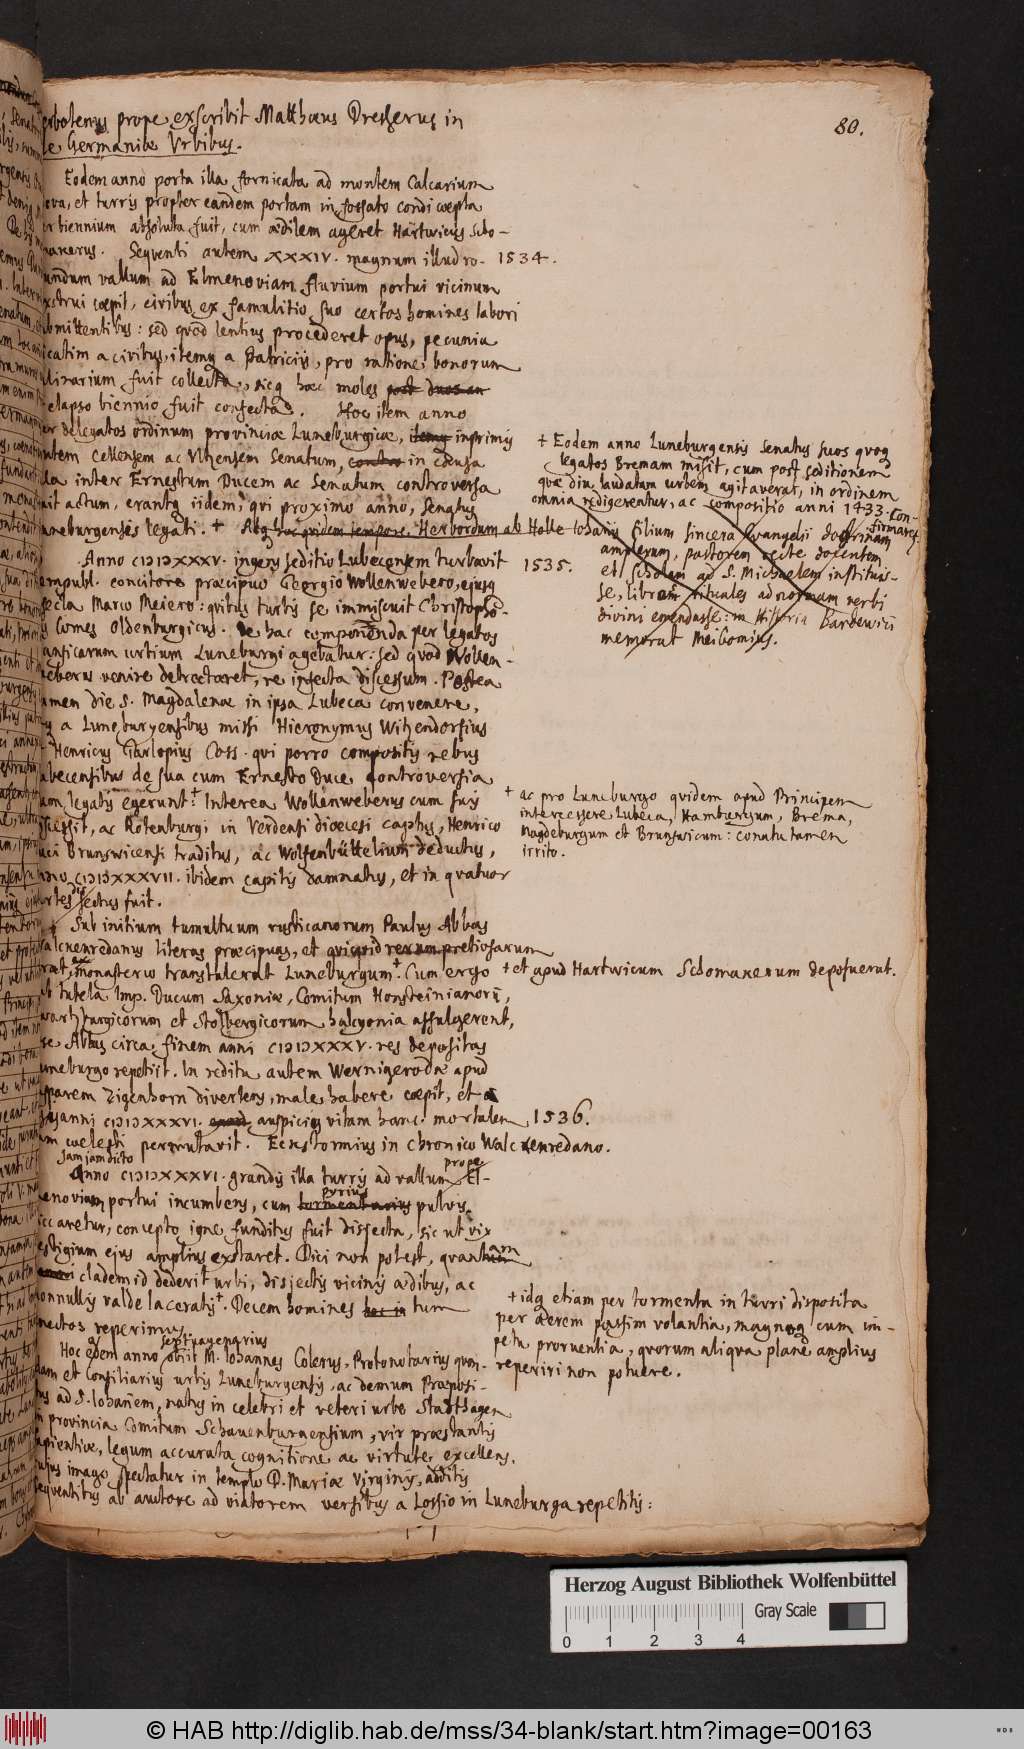 80.
prope exscribit Matthæus Dresserus in
Germaniæ Urbibus.
Eodem anno porta illa fornicata ad montem Calcarium
et turris propter eandem portam in fossato condi cœpta
biennium absoluta fuit, cum ædilem ageret Hartwicus Scho-
makerus. Sequenti autem XXXIV. magnum illud ro- 1534.
tundum vallum ad Elmenoviam fluvium portui vicinum
exstrui cœpit, civibus ex famulitio suo certos homines labori
submittentibus: sed quod lentius procederet opus, pecunia
a civibus, itemq a Patriciis, pro ratione bonorum
fuit collecta, sicq hæc moles post duos an
elapso biennio fuit confecta. Hoc item anno
per delegatos ordinum provinciæ Luneburgicæ, itemq inprimis
autem Cellensem ac Ulhensem Senatum, contro in causa
illa inter Ernestum Ducem ac Senatum controversa
fuit actum, erantq iidem, qui proximo anno, Senatus
Luneburgensis legati. + Atq hoc quidem tempore, Herbordum ab Holle Iohanis filium sincera Evangelii doctrinam
+ Eodem anno Luneburgensis Senatus suos quoq
legatos Bremam misit, cum post seditionem
quæ diu laudatam urbem agitaverat, in ordinem
omnia redigerentur, ac compositio anni 1433. con-
firmaret
amplexum, pastorem recte docentem
et Scholam ad S. Michaelem instituis-
se, libros rituales ad normam verbi
divini emendasse: in Historia Bardewici
memorat Meibomius.
Anno CIƆIƆXXXV. ingens seditio Lubecensem turbavit 1535.
rempubl. concitore præcipuo Georgio Wollenwebero, ejusq
Marco Meiero: quibus turbis se immiscuit Christopho-
rus Comes Oldenburgicus. De hac componenda per legatos
Hansicarum urbium Luneburgi agebatur: sed quod Wollen-
weberus venire detrectaret, re infecta discessum. Postea
tamen die S. Magdalenæ in ipsa Lubeca convenere,
a Luneburgensibus missi Hieronymus Witzendorfius
Henricus Garlopius Coss. qui porro compositis rebus
Lubecensibus de sua cum Ernesto Duce controversia
legatis egerunt.+ Interea Wollenweberus cum suis
+ ac pro Luneburgo quidem apud Principem
intercessere Lubeca, Hamburgum, Brema,
Magdeburgum et Brunsvicum: conatu tamen
irrito.
ac Rotenburgi in Verdensi diœcesi captus, Henrico
Duci Brunswicensi traditus, ac Wolfenbüttelium deductus,
anno CIƆIƆXXXVII. ibidem capitis damnatus, et in quatuor
partes dissectus fuit.
Sub initium tumultuum rusticanorum Paulus Abbas
Walckenredanus literas præcipuas, et quicquid rerum pretiosarum
erat, monasterio transtulerat Luneburgum.+ Cum ergo + et apud Hartwicum Schomakerum deposuerat.
sub tutela Imp. Ducum Saxoniæ, Comitum Honsteinianorū,
Schwartzburgicorum et Stolbergicorum halcyonia affulgerent,
Abbas circa finem anni CIƆIƆXXXV. res depositas
Luneburgo repetiit. In reditu autem Wernigerodæ apud
Casparem Zigenhorn divertens, male habere cœpit, et
anni CIƆIƆXXXVI. auspiciis vitam hanc mortalem 1536.
cum cœlesti permutavit. Eckstormius in Chronico Walckenredano.
Jam jam dicto
Anno CIƆIƆXXXVI. grandis illa turris ad vallum prope El-
menoviam portui incumbens, cum tormentarius pyrius pulvis
siccaretur, concepto igne, funditus fuit disjecta, sic ut vix
vestigium ejus amplius exstaret. Dici non potest, quantam
cladem id dederit urbi, disjectis vicinis ædibus, ac
nonnullis valde laceratis+. Decem homines hac in tum
enectos reperimus.
+ idq etiam per tormenta in turri disposita
per aërem passim volantia, magnoq cum im-
petu proruentia, quorum aliqua plane amplius
reperiri non potuere.
Hoc eodem anno septuagenarius obiit M. Iohannes Colerus, Protonotarius quon-
dam et Consiliarius urbis Luneburgensis, ac demum Præposi-
tus ad S. Iohañem, natus in celebri et veteri urbe Stadthagen
in provincia Comitum Schauenburgensium, vir præstantis
sapientiæ, legum accurata cognitione ac virtute excellens,
cujus imago spectatur in templo D. Mariæ Virginis, additis
sequentibus ab auctore ad viatorem versibus a Lossio in Luneburga repetitis:
Herzog August Bibliothek Wolfenbüttel
Gray Scale
0 1 2 3 4
© HAB http://diglib.hab.de/mss/34-blank/start.htm?image=00163